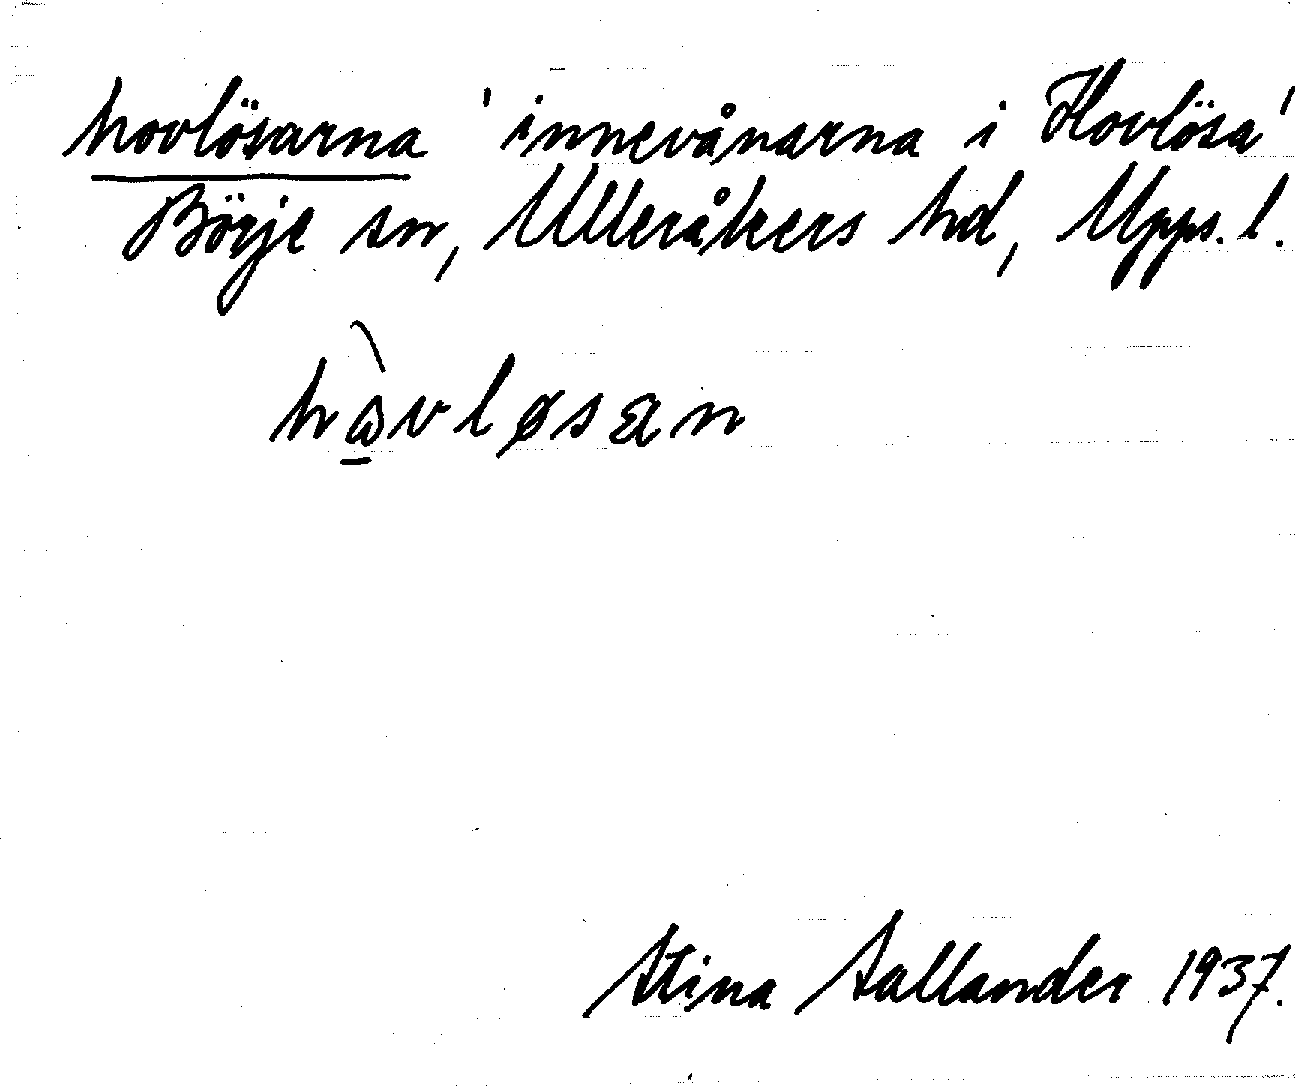 hovlösarna 'innevånarna i Hovlösa'
Börje sn, Ulleråkers hd, Upps. l.
hàvløsan
Stina Sallander 1937.